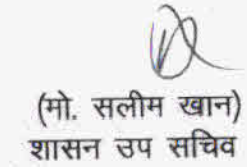 (मो. सलीम खान)
शासन उप सचिव